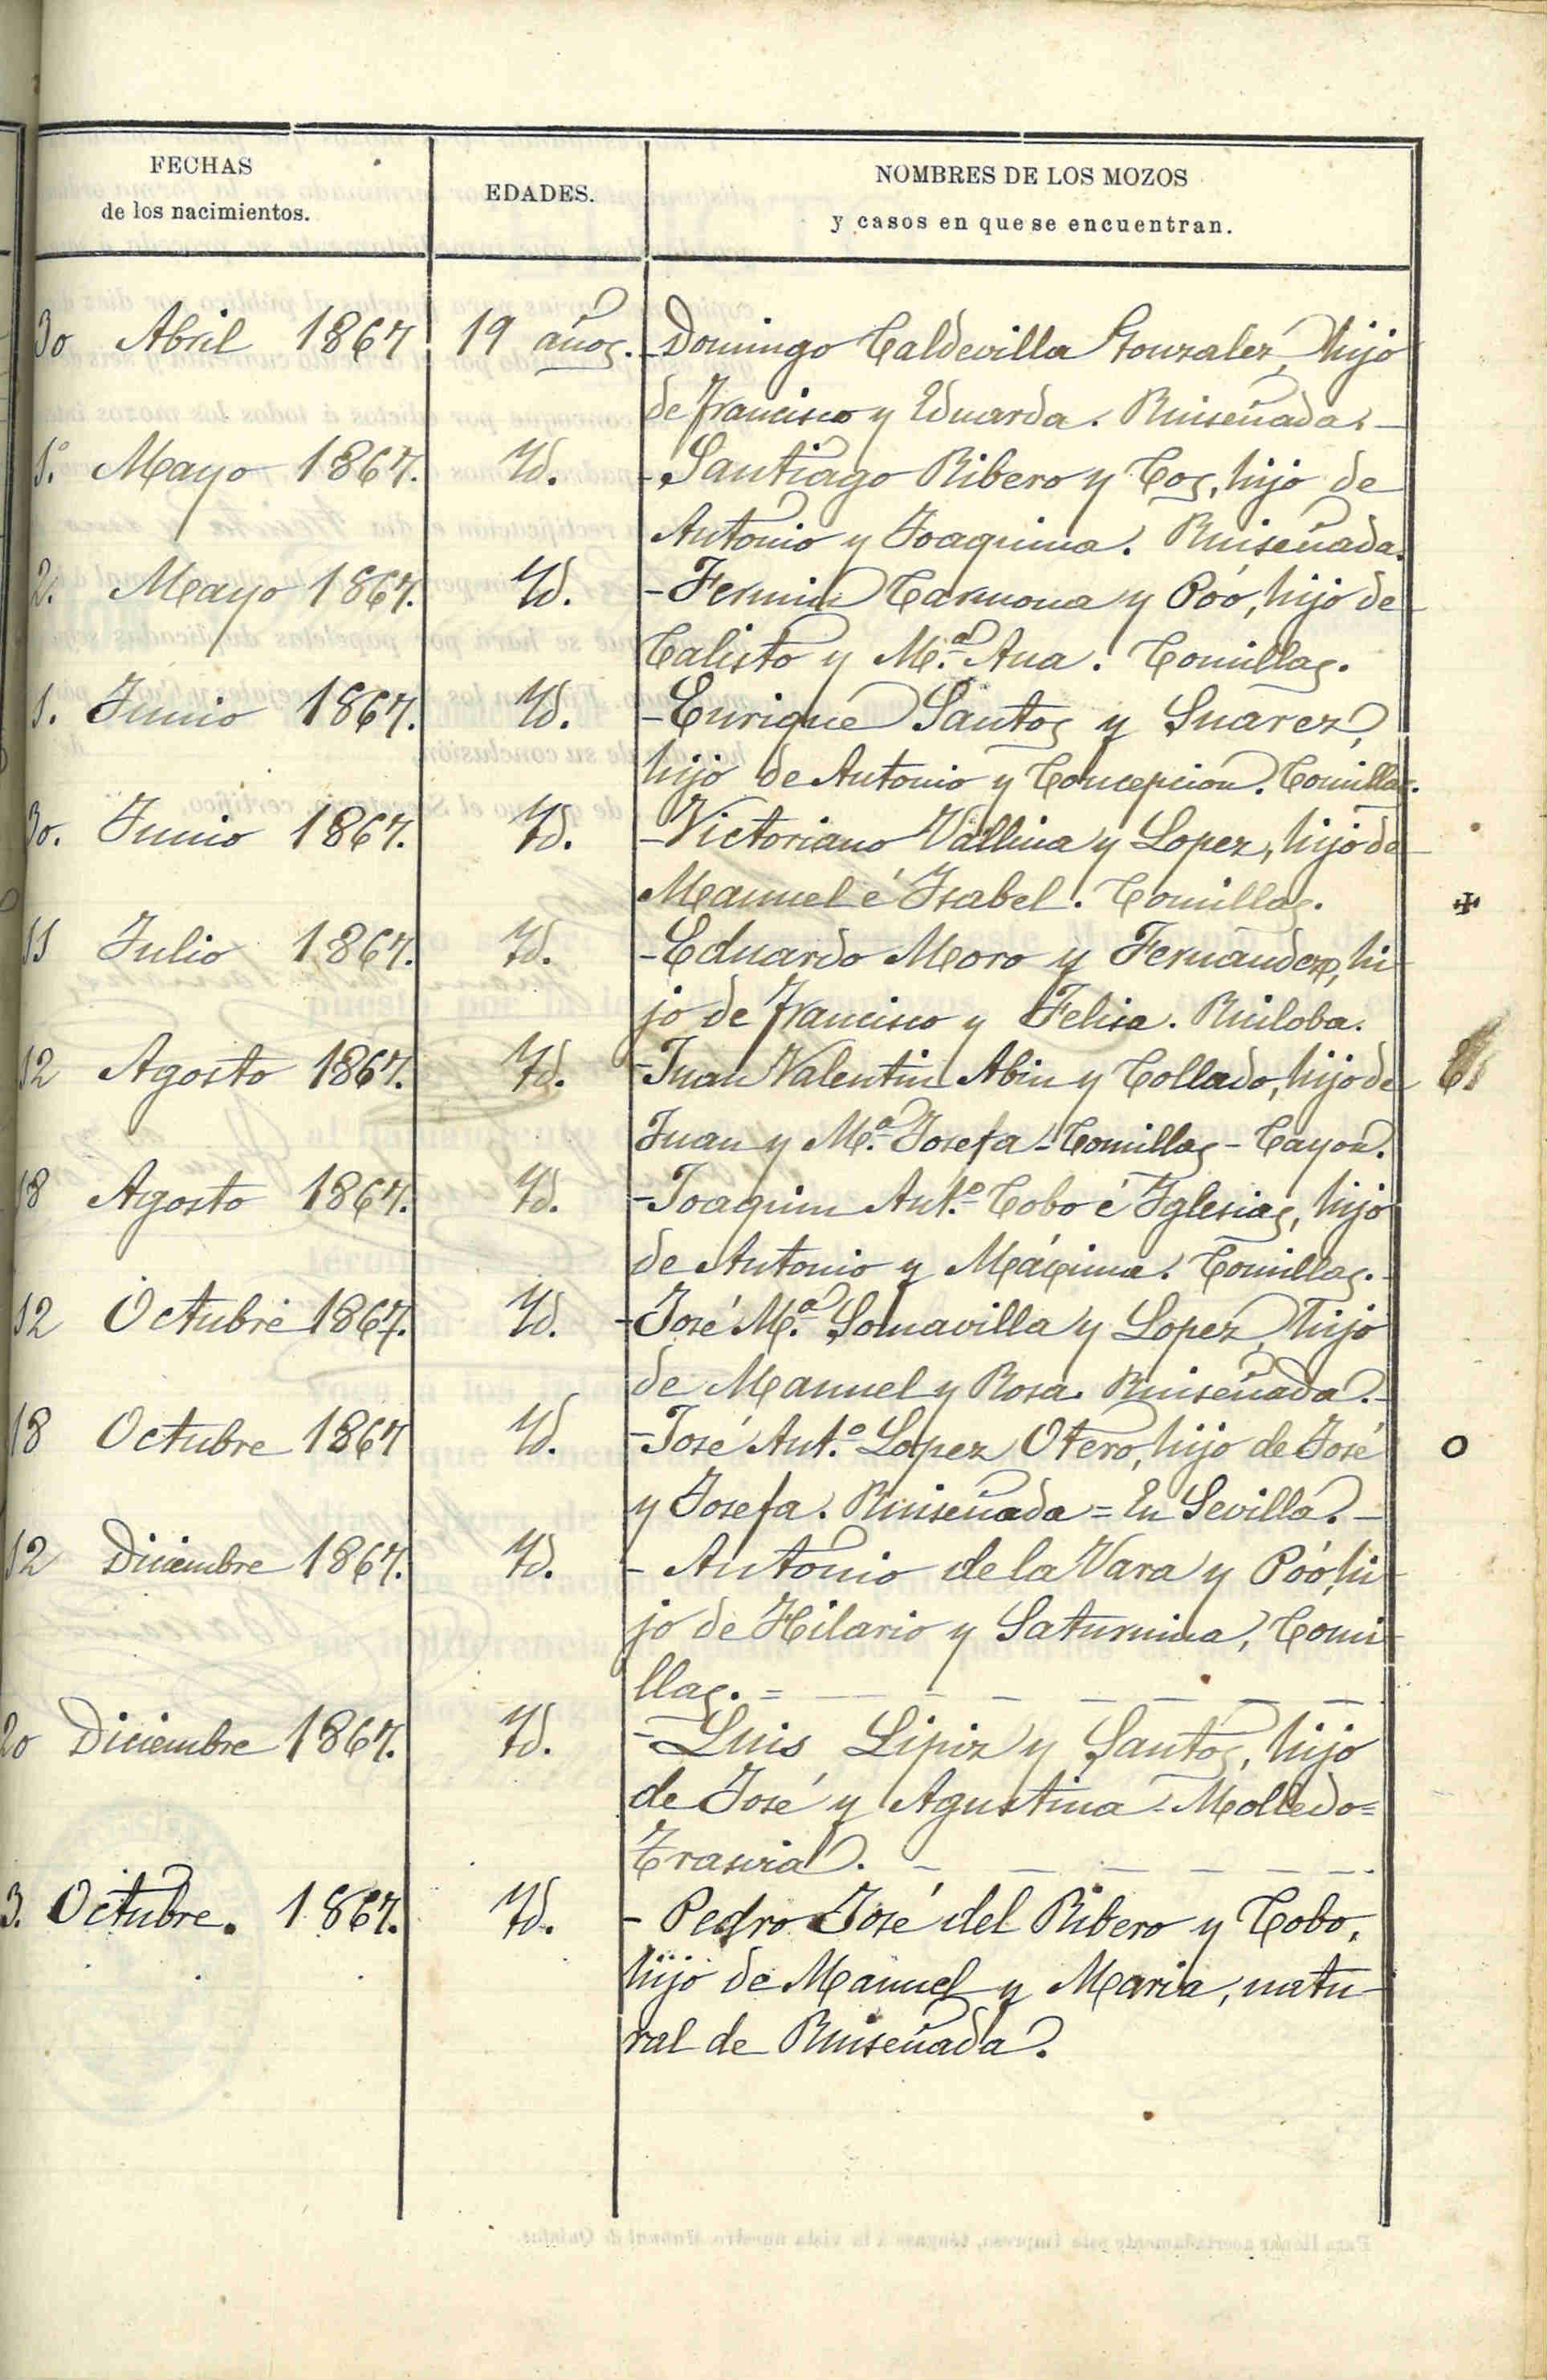 FECHAS
de los nacimientos.
EDADES.
NOMBRES DE LOS MOZOS
y casos en que se encuentran.
30 Abril 1867 19 años. - Domingo Caldevilla Gonzalez, hijo
de Francisco y Eduarda. Ruiseñada. -
1.º Mayo 1867. Id. - Santiago Ribero y Cos, hijo de
Antonio y Joaquina. Ruiseñada.
2. Mayo 1867. Id. - Fermin Carmona y Póo, hijo de
Calisto y M.ª Ana. Comillas.
1. Junio 1867. Id. - Enrique Santos y Suarez,
hijo de Antonio y Concepcion. Comillas.
30. Junio 1867. Id. - Victoriano Vallina y Lopez, hijo de
Manuel é Isabel. Comillas. ✠
11 Julio 1867. Id. - Eduardo Moro y Fernandez, hi
jo de Francisco y Felisa. Ruiloba.
12 Agosto 1867. Id. - Juan Valentin Abin y Collado, hijo de
Juan y M.ª Josefa - Comillas - Cayon.
18 Agosto 1867. Id. - Joaquin Ant.º Cobo é Iglesias, hijo
de Antonio y Máxima. Comillas. -
12 Octubre 1867. Id. - José M.ª Somavilla y Lopez, hijo
de Manuel y Rosa. Ruiseñada. -
18 Octubre 1867 Id. - José Ant.º Lopez Otero, hijo de José O
y Josefa. Ruiseñada = En Sevilla. -
12 Diciembre 1867. Id. - Antonio de la Vara y Póo, hi
jo de Hilario y Saturnina, Comi
llas. =
20 Diciembre 1867. Id. - Luis Lipiz y Santos, hijo
de José y Agustina - Molledo =
Trasvia.
3. Octubre. 1867. Id. - Pedro José del Ribero y Cobo,
hijo de Manuel y Maria, natu-
ral de Ruiseñada.